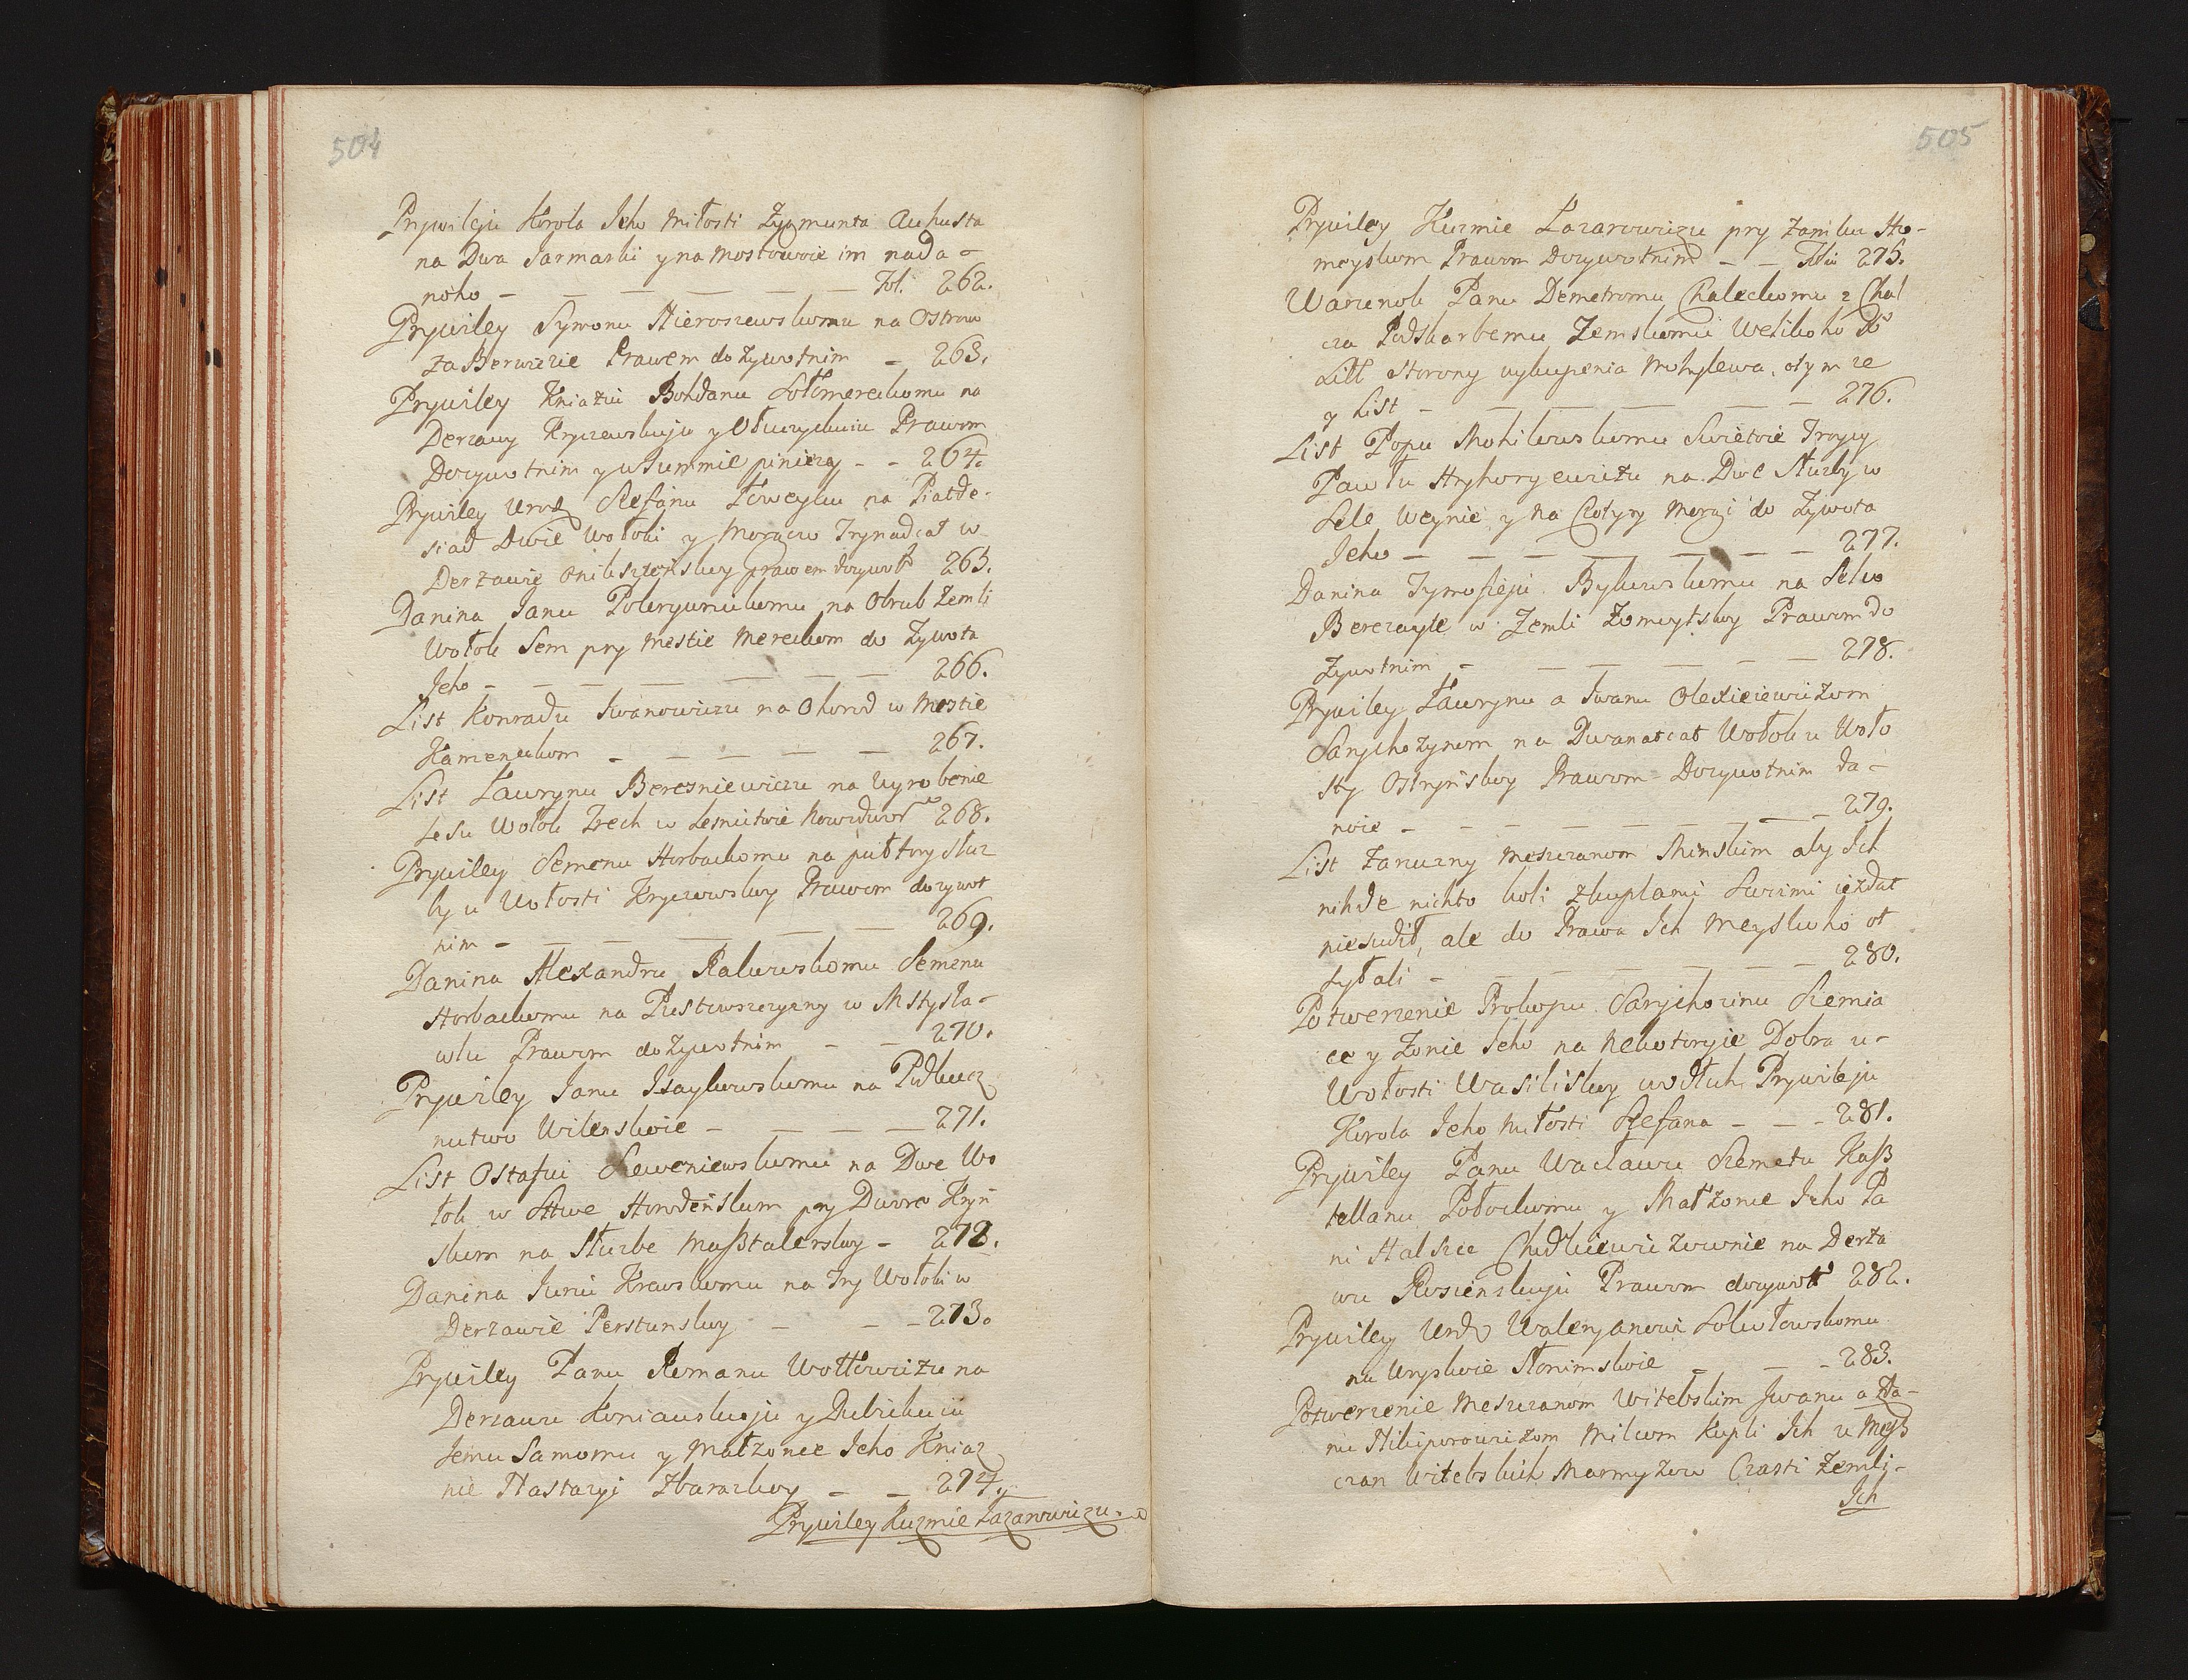 504
Prywileju Korola Jeho Miłosti Zygmunta Auhusta
na Dwa Jarmarki y na Mostowoie im nada-
noho - - - - - - Fol. 262.
Prywiley Symonu Hieroszewskomu na Ostrow
za Berwicie Prawem dożywotnim - 263.
Prywiley Kniaziu Bohdanu Sołomereckomu na
Derzawy Kryczewskuju y Ołuczyckuiu Prawom
Dozywotnim y w Summie piniezy - - 264.
Prywiley Urodz Stefanu Łoweyku na Piatde-
siad Dwie Wołoki y Morgow Trynadcat w
Derzawie Onikszteńskoy prawem dozywot 265.
Danina Janu Pokrywnickomu na Obrub Zemli
Wołok Sem pry Mestie Mereckom do Zywota
Jeho - - - - - - - 266.
List Konradu Iwanowiczu na Ohorod w Mestie
Kameneckom - - - - - 267.
List Ławrynu Beresniewiczu na Wyrobenie
Lesu Wołok Trech w Lesnictwie Nowodwor 268.
Prywiley Semenu Horbackomu na pułtory służ
by u Wołosti Kryczowskoy Prawom dozywot
nim - - - - - 269.
Danina Alexandru Rakowskomu Semenu
Horbackomu na Pustowszczyzny w Mstysła-
wlu Prawom dożywotnim - - 270.
Prywiley Janu Isaykowskomu na Pidkucz
nictwo Wilenskoie - - - - 271.
List Ostafiu Seweniewskomu na Dwe Wo
łok w Stwe Horodeńskom pry Dworo Kryń
skom na Służbe Masztalerskoy - 272.
Danina Juriu Krewskomu na Try Wołoki w
Derzawie Perstunskoy - - - 273.
Prywiley Panu Romanu Wołłowiczu na
Derzawu Koniauskuju y Dubickuiu
Jemu Samomu y Małzonce Jeho Kniaz
nie Nastazyi Zbarazkoy - - 274.
Prywiley Kuzmie Łazarowiczu.
505
Prywiley Kuzmie Łazarowiczu pry Zamku Ho-
meyskom Prawom Dozywotnim - - Foliu 275.
Warunok Panu Demetromu Chaleckomu z Chal
cza Podskarbemu Zemskomu Welikoho Xo
Litt Storony wykupenia Mohylewa, o tym ze
y List - - - - - - 276.
List Popu Mohilewskomu Swietoie Troycy
Pawłu Hryhoryewiczu na Dwe Służby w
Sele Weynie, y na Czotyry Morgi do Zywota
Jeho - - - - - - - 277.
Danina Tymofieju Bykowskomu na Selo
Berczayle w Zemli Żomoytskoy Prawom do
Zywotnim - - - - - - 278.
Prywiley Ławrynu a Iwanu Olexieiewiczom
Sarychozynom na Dwanatcat Wołok u Woło
sty Ostryńskoy Prawom Dozywotnim da-
noie - - - - - - - 279.
List Zaruczny Meszczanom Minskim aby Ich
nihde nichto koli z kuplami Swoimi ieżdat
nie sudił, ale do Prawa Ich Meyskoho ot
syłali - - - - - - 280.
Potwerzenie Prokopu Sarychozinu Siemia
ce y Żonie Jeho na Nekotoryie Dobra u-
Wołosti Wasiliskoy wodłuh Prywileju
Korola Jeho Miłosti Stefana - - - 281.
Prywiley Panu Wacławu Szemetu Kasz
tellanu Połockomu y Małżonce Jeho Pa
ni Halszce Chodkiewiczownie na Derża
wu Rosienskuju Prawom dozywot 282.
Prywiley Urodz Waleryanowi Sokołowskomu
na Woyskoie Słonimskoie - - - 283.
Potwerzenie Meszczanom Witebskim Iwanu a Zda-
nu Nikiporowiczom Milcom Kupli Ich u Mesz
czan Witebskich Marmyzow Czasti Zemli-
Ich